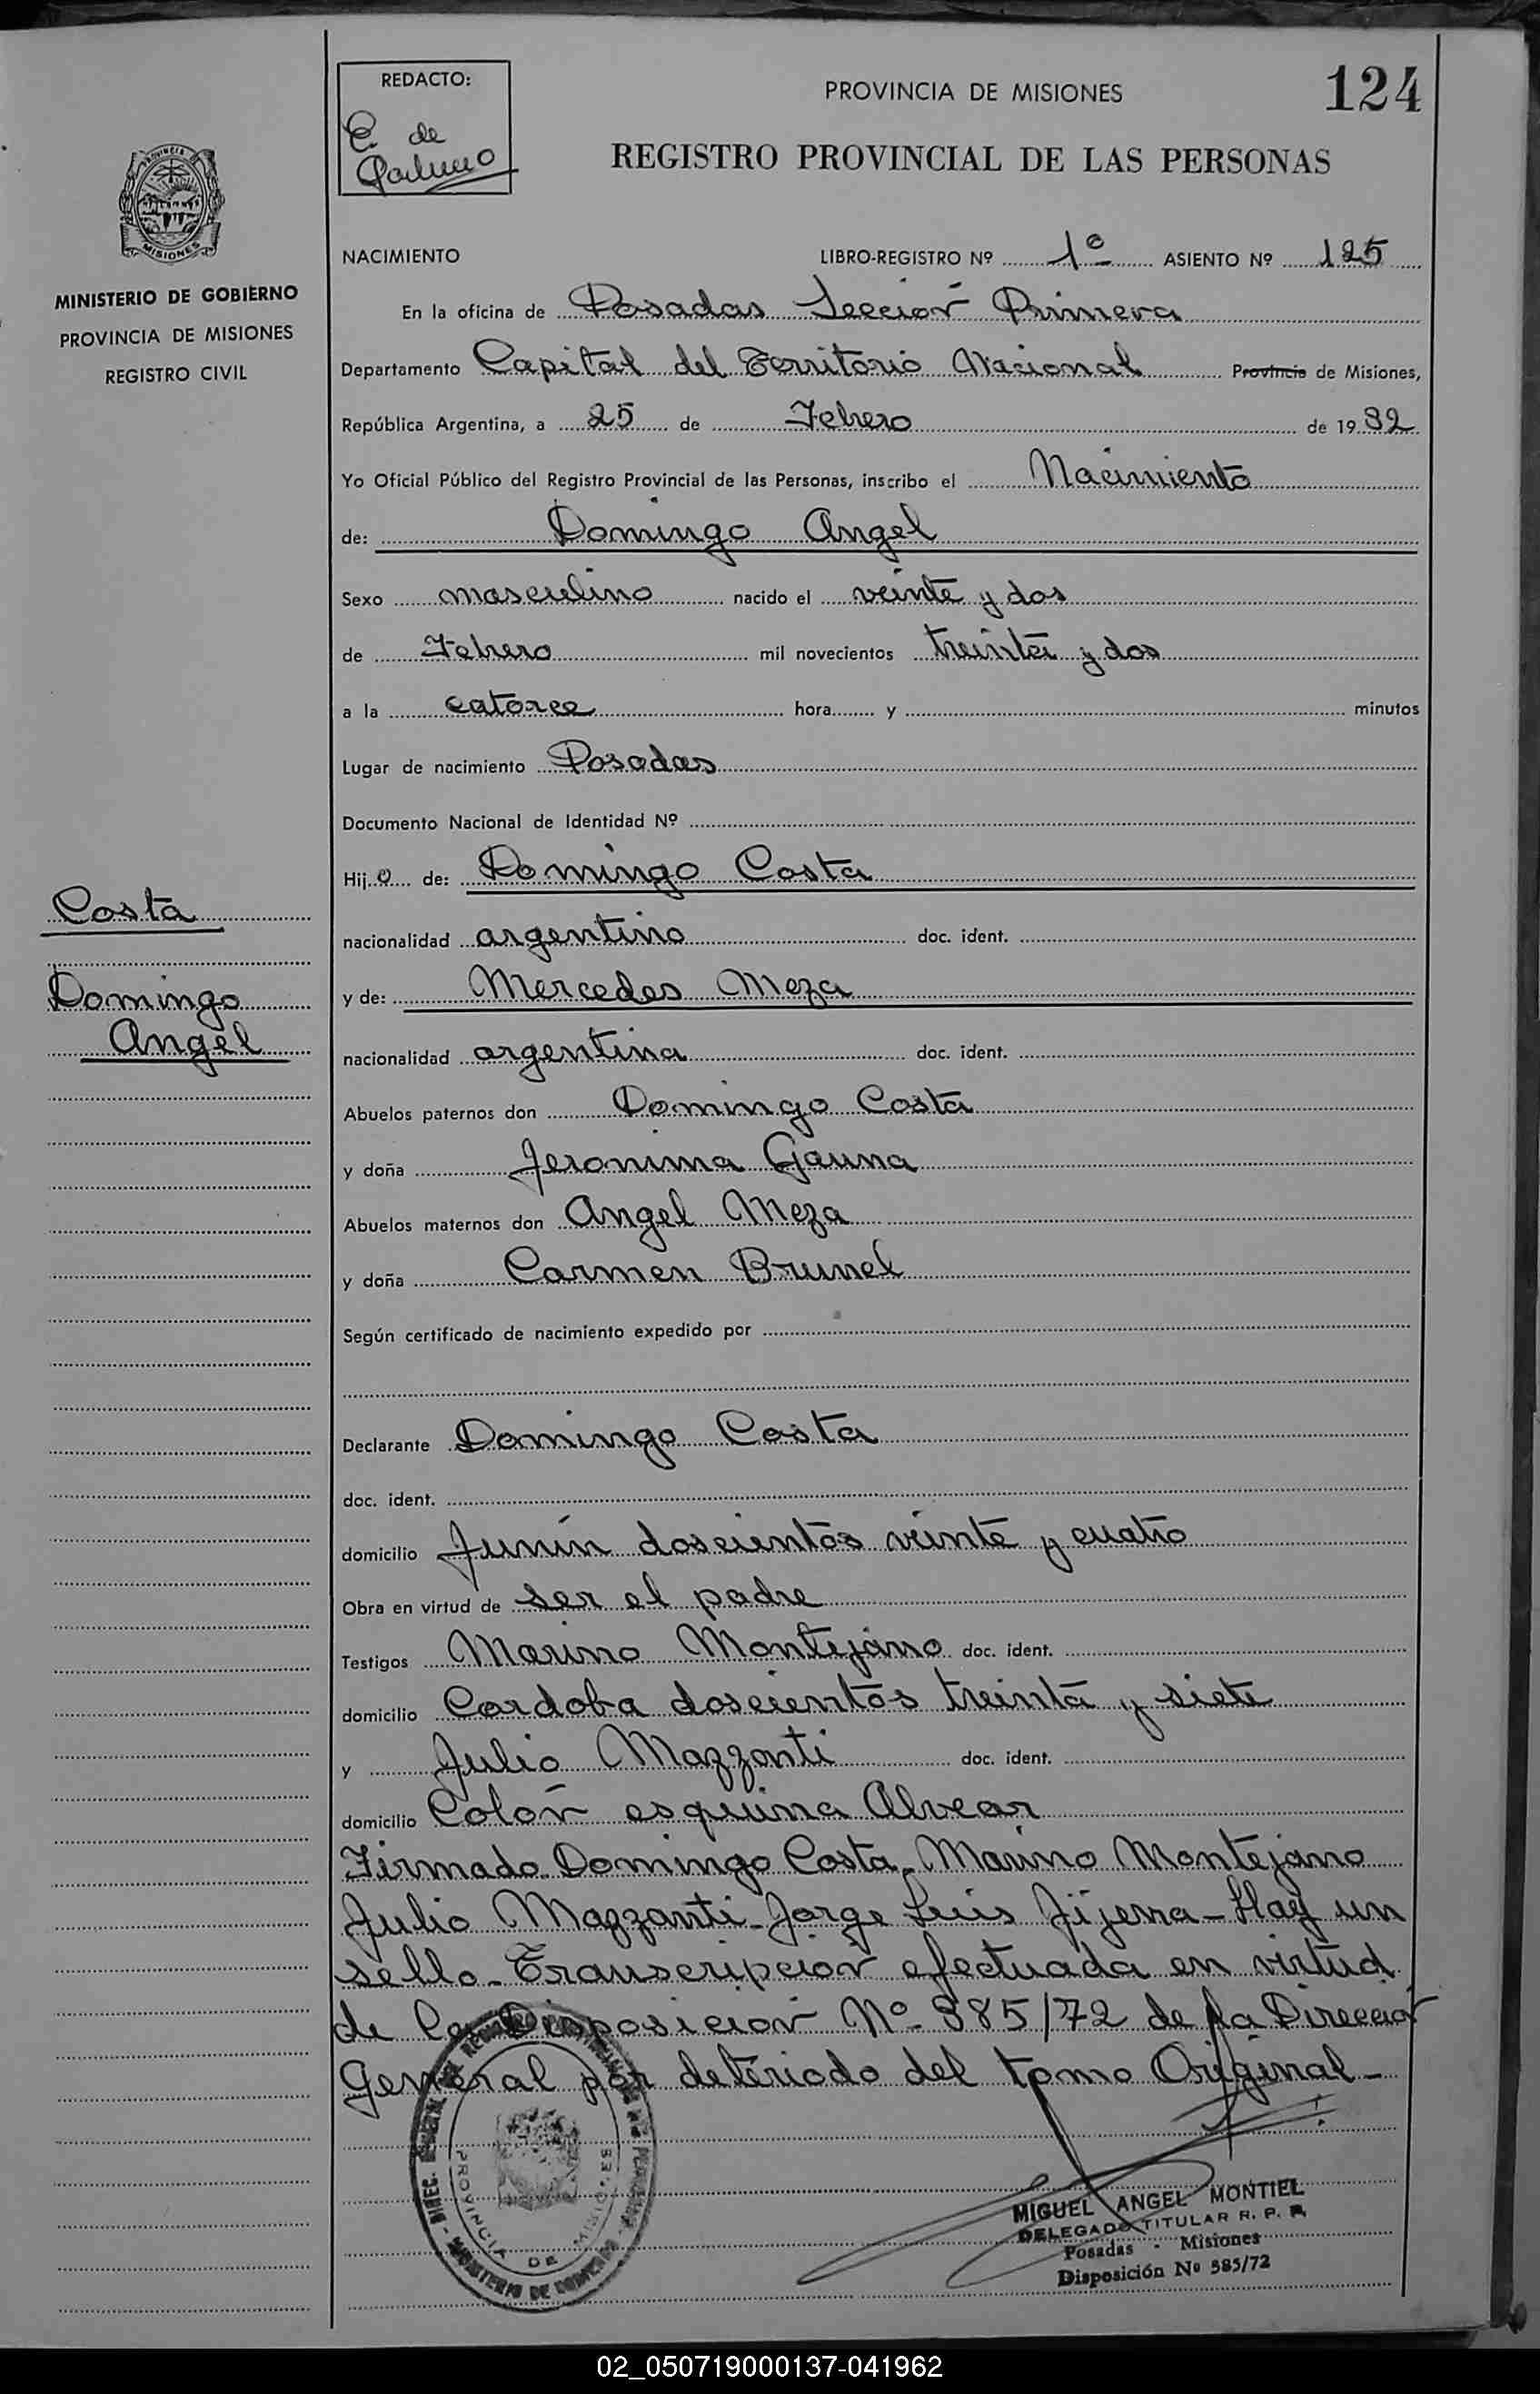 124
REDACTO:
E. de
PROVINCIA DE MISIONES
REGISTRO PROVINCIAL DE LAS PERSONAS
PROVINCIA
MISIONES
MINISTERIO DE GOBIERNO
PROVINCIA DE MISIONES
REGISTRO CIVIL
NACIMIENTO LIBRO-REGISTRO Nº 1º ASIENTO Nº 125
En la oficina de Posadas Sección Primera
Departamento Capital del Territorio Nacional Provincia de Misiones,
República Argentina, a 25 de Febrero de 1932
Yo Oficial Público del Registro Provincial de las Personas, inscribo el Nacimiento
de: Domingo Angel
Sexo masculino nacido el veinte y dos
de Febrero mil novecientos treinta y dos
a la catorce hora y minutos
Lugar de nacimiento Posadas
Documento Nacional de Identidad Nº
Hijo de: Domingo Costa
Costa
nacionalidad argentino doc. ident.
Domingo
Angel
y de: Mercedes Meza
nacionalidad argentina doc. ident.
Abuelos paternos don Domingo Costa
y doña Jeronima Gauna
Abuelos maternos don Angel Meza
y doña Carmen Brunel
Según certificado de nacimiento expedido por
Declarante Domingo Costa
doc. ident.
domicilio Junín doscientos veinte y cuatro
Obra en virtud de ser el padre
Testigos Marino Montejano doc. ident.
domicilio Cordoba doscientos treinta y siete
y Julio Mazzanti doc. ident.
domicilio Colón esquina Alvear
Firmado Domingo Costa - Marino Montejano
Julio Mazzanti - Jorge Luis Jijena - Hay un
sello - Transcripción efectuada en virtud
de la Disposición Nº 385/72 de la Dirección
General por deteriodo del tomo Original -
PROVINCIA DE MISIONES
MINISTERIO DE GOBIERNO
MIGUEL ANGEL MONTIEL
DELEGADO TITULAR R. P. P.
Posadas - Misiones
Disposición Nº 385/72
02_050719000137-041962